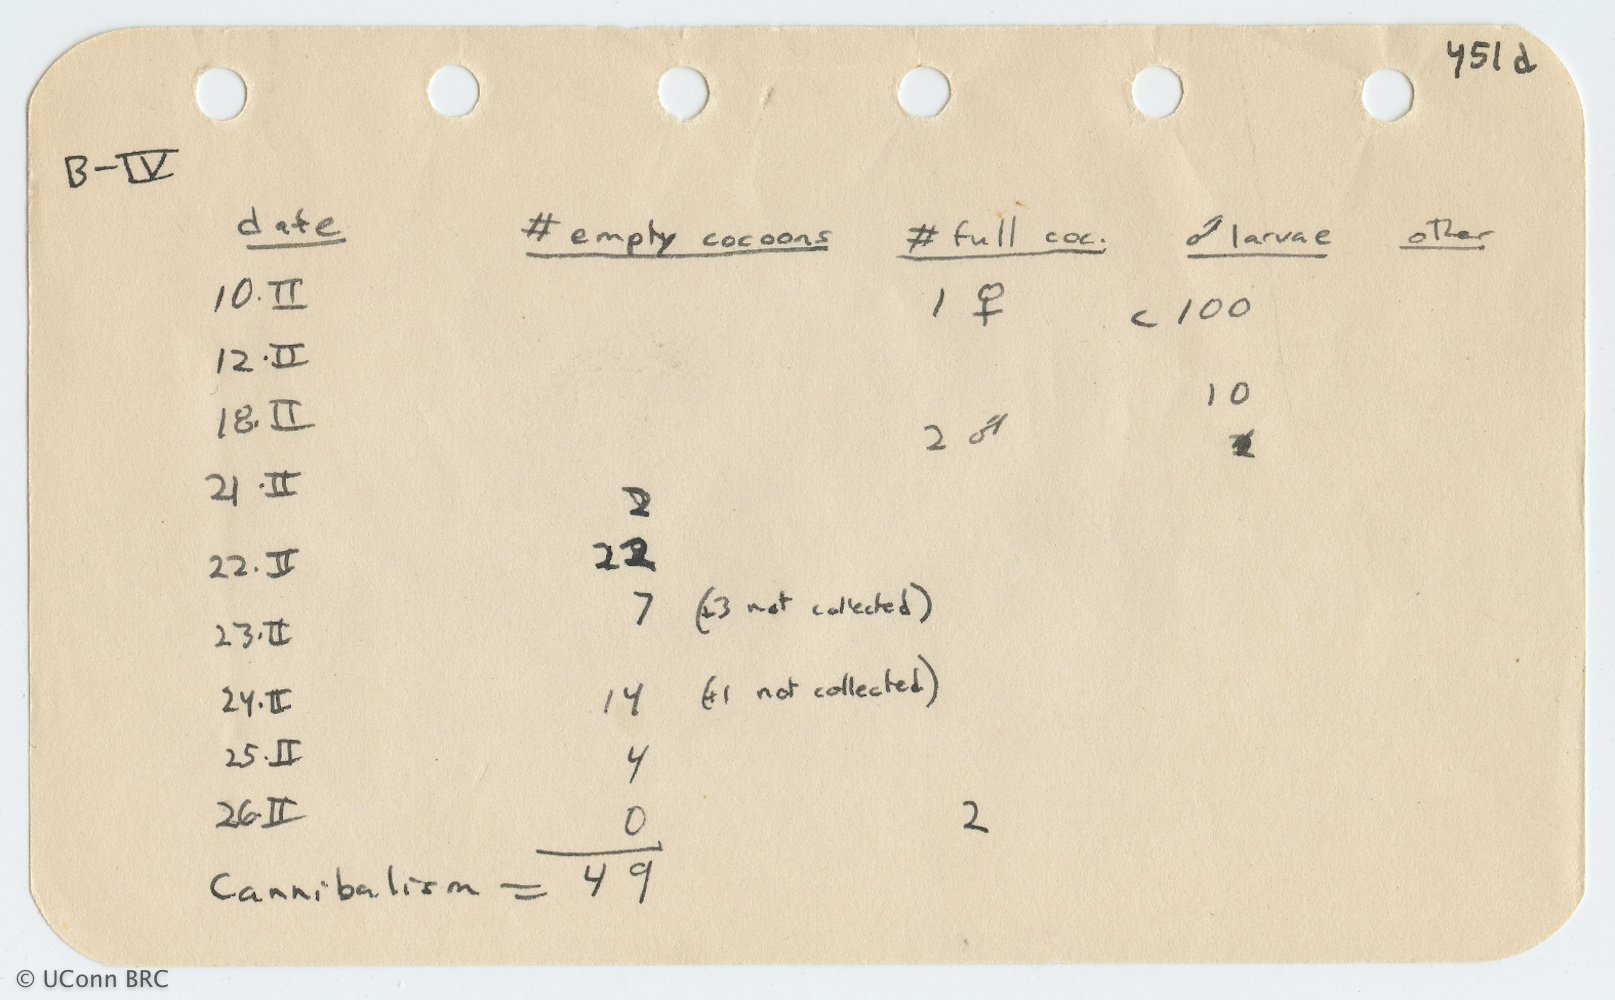 451d
B-IV
date # empty cocoons # full coc. ♂ larvae other
10.II 1 ♀ < 100
12.II
18.II 2 ♂ 10
21.II 2
22.II 22
23.II 7 (+3 not collected)
24.II 14 (+1 not collected)
25.II 4
26.II 0 2
Cannibalism = 49
© UConn BRC